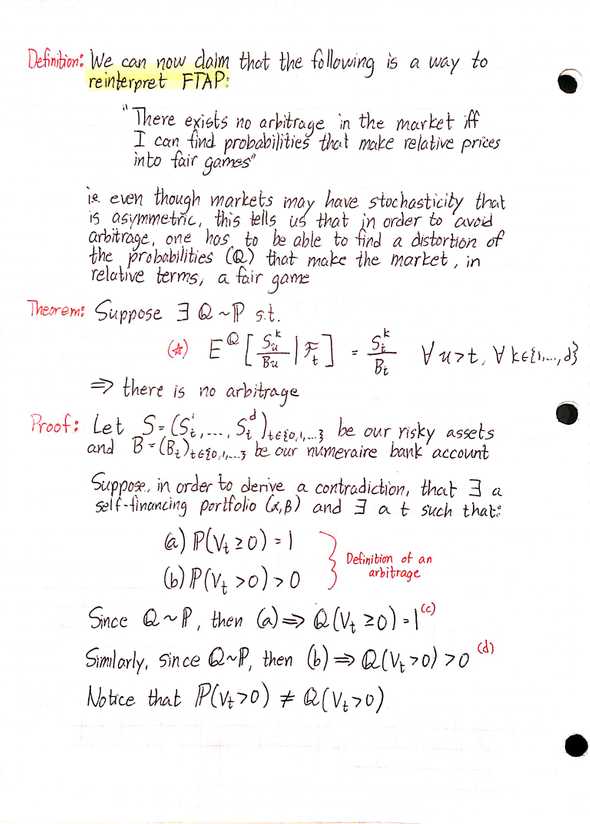 Definition: We can now claim that the following is a way to
reinterpret FTAP:
"There exists no arbitrage in the market iff
I can find probabilities that make relative prices
into fair games"
ie even though markets may have stochasticity that
is asymmetric, this tells us that in order to avoid
arbitrage, one has to be able to find a distortion of
the probabilities (ℚ) that make the market, in
relative terms, a fair game
Theorem: Suppose ∃ ℚ ~ ℙ s.t.
(*) E^ℚ [ S_u^k / B_u | ℱ_t ] = S_t^k / B_t ∀ u>t, ∀ k∈{1,...,d}
⇒ there is no arbitrage
Proof: Let S = (S_t^1, ..., S_t^d)_{t∈{0,1,...}} be our risky assets
and B = (B_t)_{t∈{0,1,...}} be our numeraire bank account
Suppose, in order to derive a contradiction, that ∃ a
self-financing portfolio (α,β) and ∃ a t such that:
(a) ℙ(V_t ≥ 0) = 1
(b) ℙ(V_t > 0) > 0
Definition of an
arbitrage
Since ℚ ~ ℙ, then (a) ⇒ ℚ(V_t ≥ 0) = 1 (c)
Similarly, since ℚ~ℙ, then (b) ⇒ ℚ(V_t > 0) > 0 (d)
Notice that ℙ(V_t > 0) ≠ ℚ(V_t > 0)